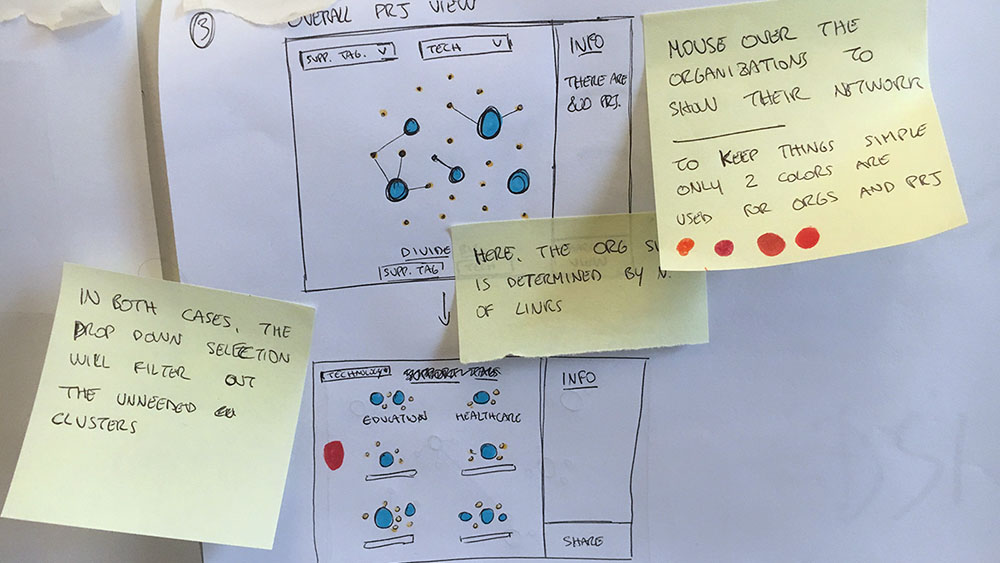 3
OVERALL PRJ VIEW
SUPP. TAG. V
TECH V
INFO
THERE ARE
PRJ.
DIVIDE
SUPP. TAG
MOUSE OVER THE
ORGANIZATIONS TO
SHOW THEIR NETWORK
TO KEEP THINGS SIMPLE
ONLY 2 COLORS ARE
USED FOR ORGS AND PRJ
HERE, THE ORG
IS DETERMINED BY N.
OF LINKS
IN BOTH CASES, THE
DROP DOWN SELECTION
WILL FILTER OUT
THE UNNEEDED
CLUSTERS
TECHNOLOGY
INFO
EDUCATION
HEALTHCARE
SHARE